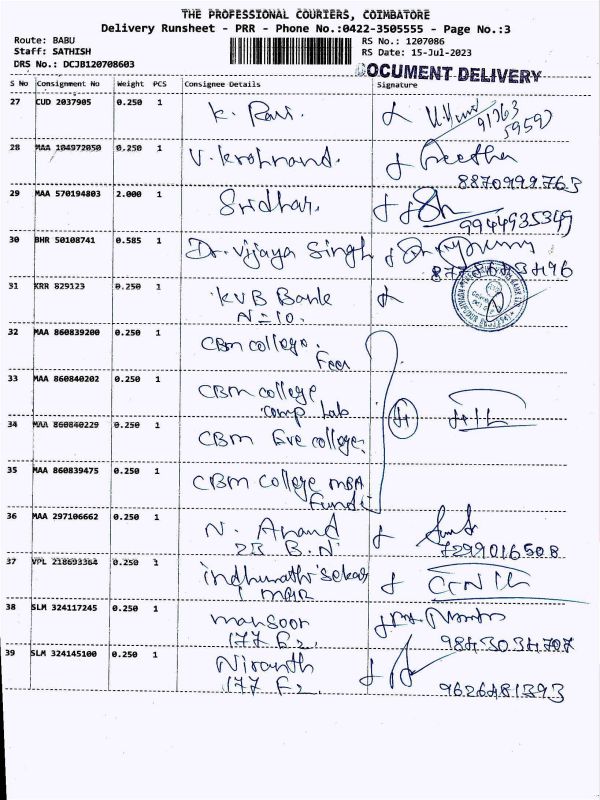 THE PROFESSIONAL COURIERS, COIMBATORE
Delivery Runsheet - PRR - Phone No.:0422-3505555 - Page No.:3
Route: BABU
RS No.: 1207086
Staff: SATHISH
RS Date: 15-Jul-2023
DRS No.: DCJB120708603
DOCUMENT DELIVERY
S No Consignment No Weight PCS Consignee Details Signature
27 CUD 2037905 0.250 1 K. Ravi.
91763
59592
28 MAA 104972050 0.250 1 Geetha
8870999763
29 MAA 570194803 2.000 1 Sridhar.
9944935349
30 BHR 50108741 0.585 1 Dr. Vijaya Singh
31 KRR 829123 0.250 1 KVB Bank
N=10.
32 MAA 860839200 0.250 1 CBM college.
33 MAA 860840202 0.250 1 CBM college
comp Lab
34 MAA 860840229 0.250 1 CBM Eve college.
35 MAA 860839475 0.250 1 CBM College MBA
36 MAA 297106662 0.250 1 N. Anand
23 B.N
7299016508
37 VPL 218693364 0.250 1
38 SLM 324117245 0.250 1 mansoor
177 F2.
9843034707
39 SLM 324145100 0.250 1 Niranth
177 F2.
9626481393